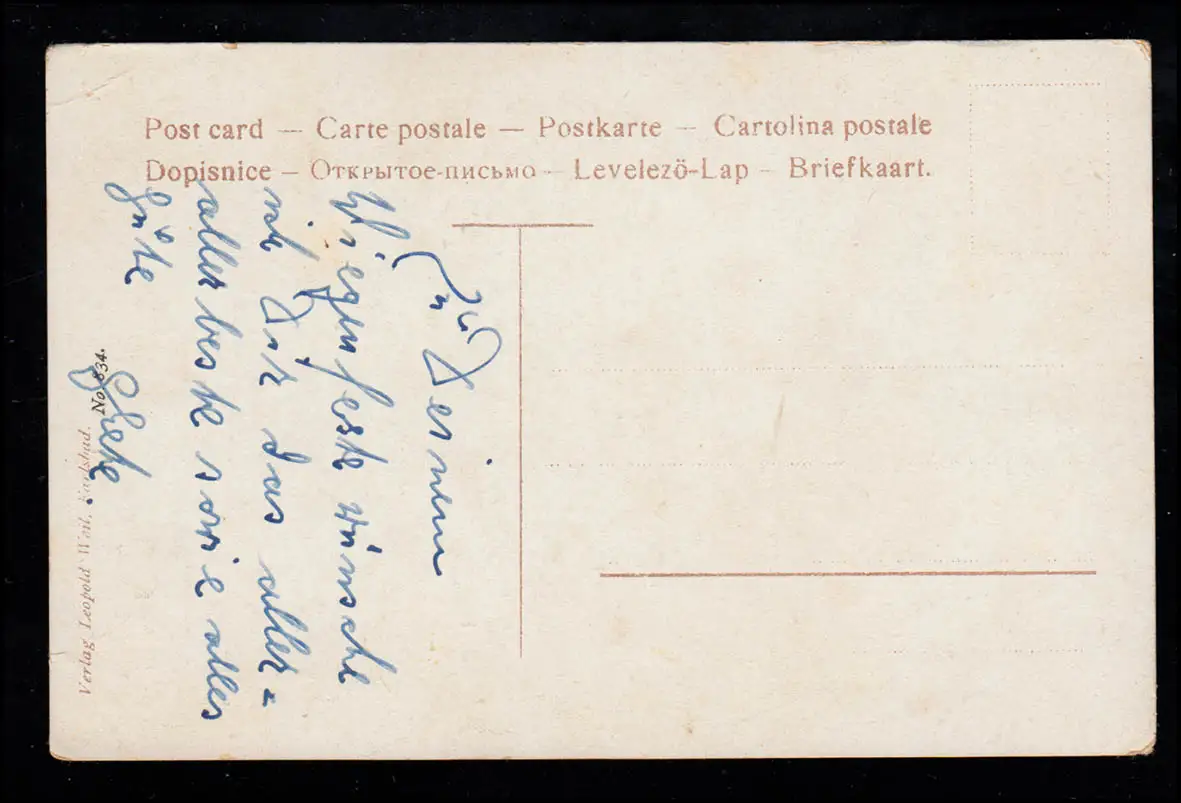 Post card — Carte postale — Postkarte — Cartolina postale
Dopisnice — Открытое-письмо — Levelező-Lap — Briefkaart.
Zu Deinem
Wiegenfeste wünsche
ich Dir das aller=
allerbeste sowie alles
Gute
Grete.
No. 834.
Verlag Leopold Weil, Karlsbad.